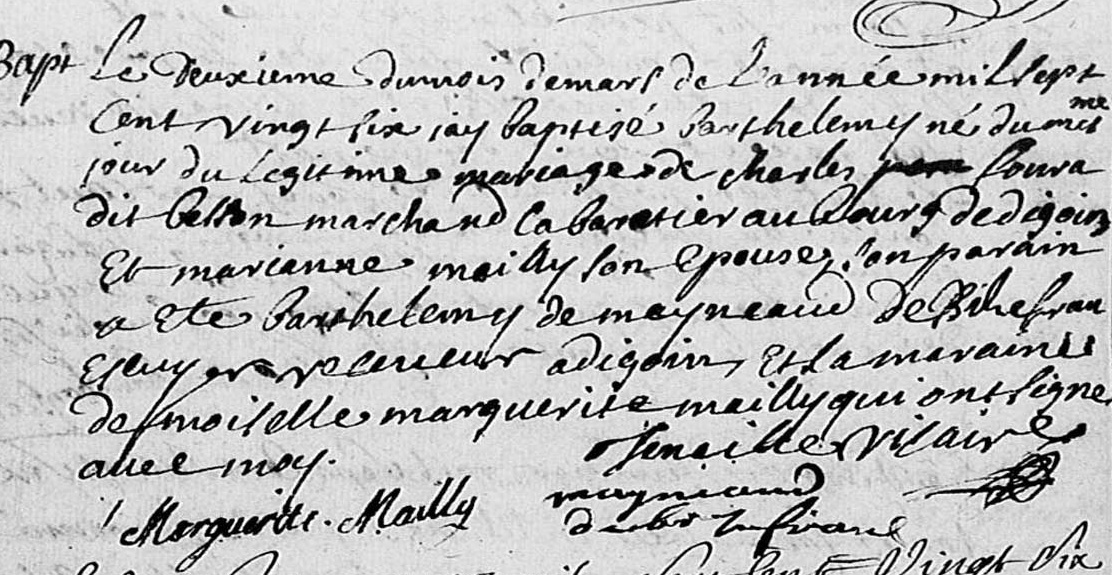 Bapt Le deuxieme du mois de mars de L'année mil sept
Cent vingt six jay baptisé barthelemy né du mesme
jour du Legitime mariage de charles Loura
dit belton marchand Cabaretier au bourg de digoin
Et marianne mailly son Epouse, son parain
a Ete barthelemy de mayneaud de
Ecuyer receveur a digoin, Et la maraine
demoiselle marguerite mailly qui ont signe
avec moy.
vicaire
Marguerite Mailly
mayneaud
Vingt Six